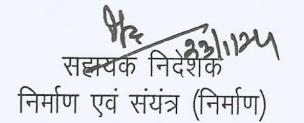 सहायक निदेशक
निर्माण एवं संयंत्र (निर्माण)